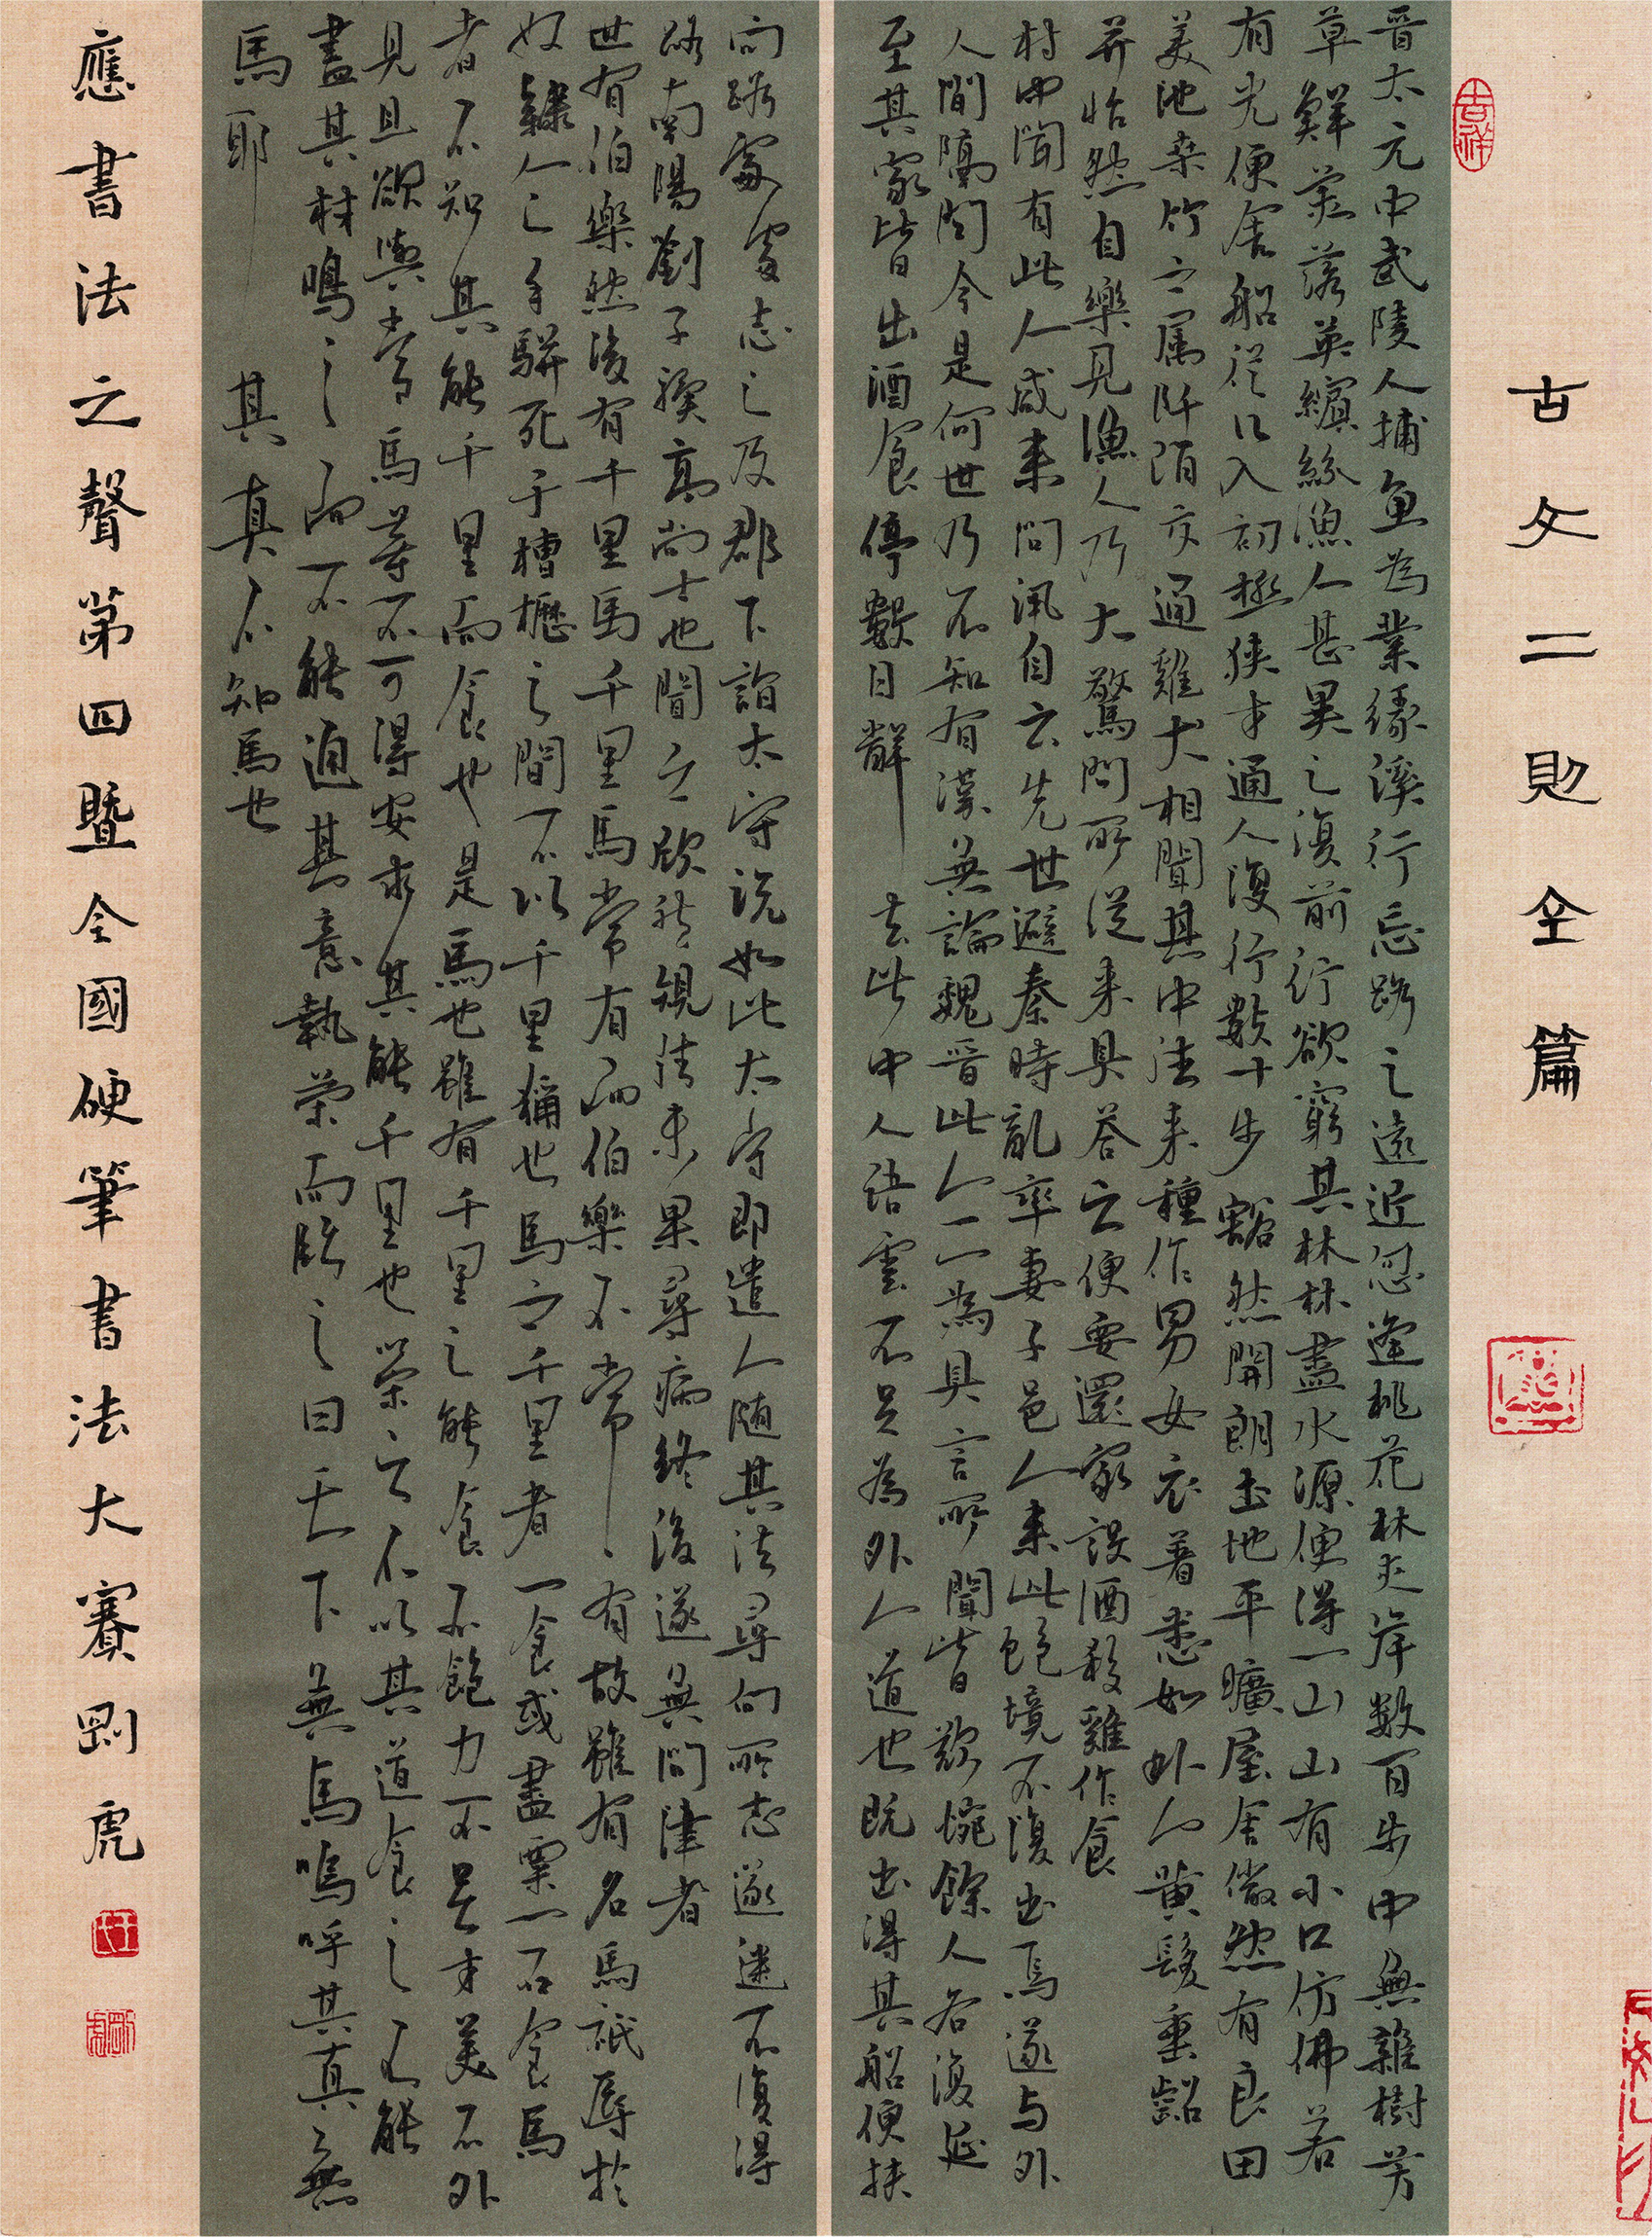 古文二則全篇
晋太元中武陵人捕魚為業緣溪行忘路之遠近忽逢桃花林夾岸數百步中無雜樹芳
草鮮美落英繽紛漁人甚異之復前行行欲窮其林林盡水源便得一山山有小口仿佛若
有光便舍船從口入初極狹才通人復行數十步豁然開朗土地平曠屋舍儼然有良田
美池桑竹之属阡陌交通雞犬相聞其中往来種作男女衣著悉如外人黄髮垂髫
并怡然自樂見漁人乃大驚問所從来具答之便要還家設酒殺雞作食
村中聞有此人咸来問訊自云先世避秦時亂率妻子邑人来此絶境不復出焉遂与外
人間隔問今是何世乃不知有漢無論魏晋此人一一為具言所聞皆歎惋餘人各復延
至其家皆出酒食停數日辭去此中人語雲不足為外人道也既出得其船便扶
向路處處志之及郡下詣太守説如此太守即遣人随其往尋向所志遂迷不復得
路南陽劉子驥高尚士也聞之欣然規往未果尋病終後遂無問津者
世有伯樂然後有千里馬千里馬常有而伯樂不常有故雖有名馬祇辱於
奴隸人之手駢死于槽櫪之間不以千里稱也馬之千里者一食或盡粟一石食馬
者不知其能千里而食也是馬也雖有千里之能食不飽力不足才美不外
見且欲與常馬等不可得安求其能千里也策之不以其道食之不能
盡其材鳴之而不能通其意執策而臨之曰天下無馬嗚呼其真無
馬耶其真不知馬也
應書法之聲第四暨全國硬筆書法大賽剛虎
吉祥